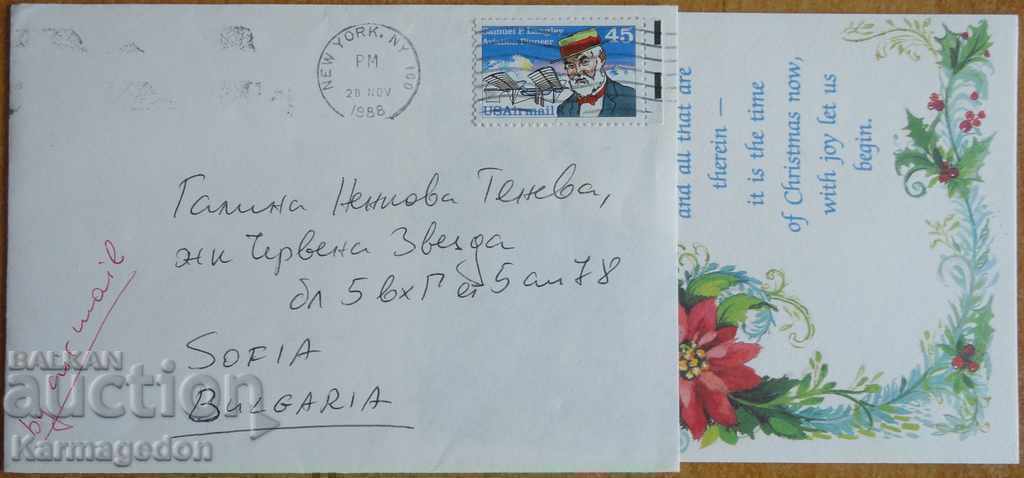 NEW YORK, NY 100
PM
28 NOV
1988
Samuel P. Langley
Aviation Pioneer
45
USAirmail
Галина Ненкова Тенева,
жк Червена Звезда
бл 5 вх Г ет 5 ап 78
SOFIA
BULGARIA
by air mail
and all that are
therein —
it is the time
of Christmas now,
with joy let us
begin.
BALKAN
auction
Karmagedon